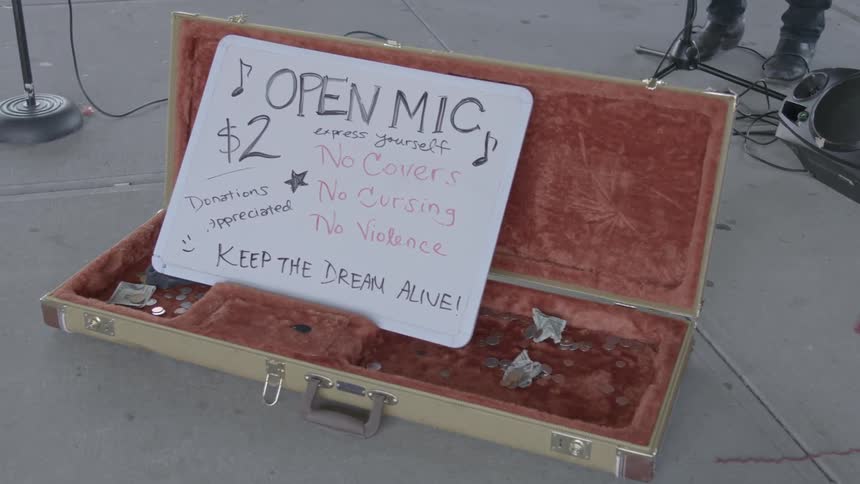 OPEN MIC
express yourself
$2
No Covers
No Cursing
No Violence
Donations
Appreciated
KEEP THE DREAM ALIVE!